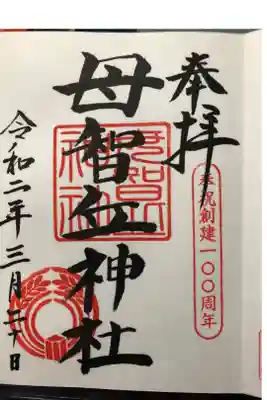 奉拝
奉祝創建一〇〇周年
母智丘神社
令和二年三月二十日